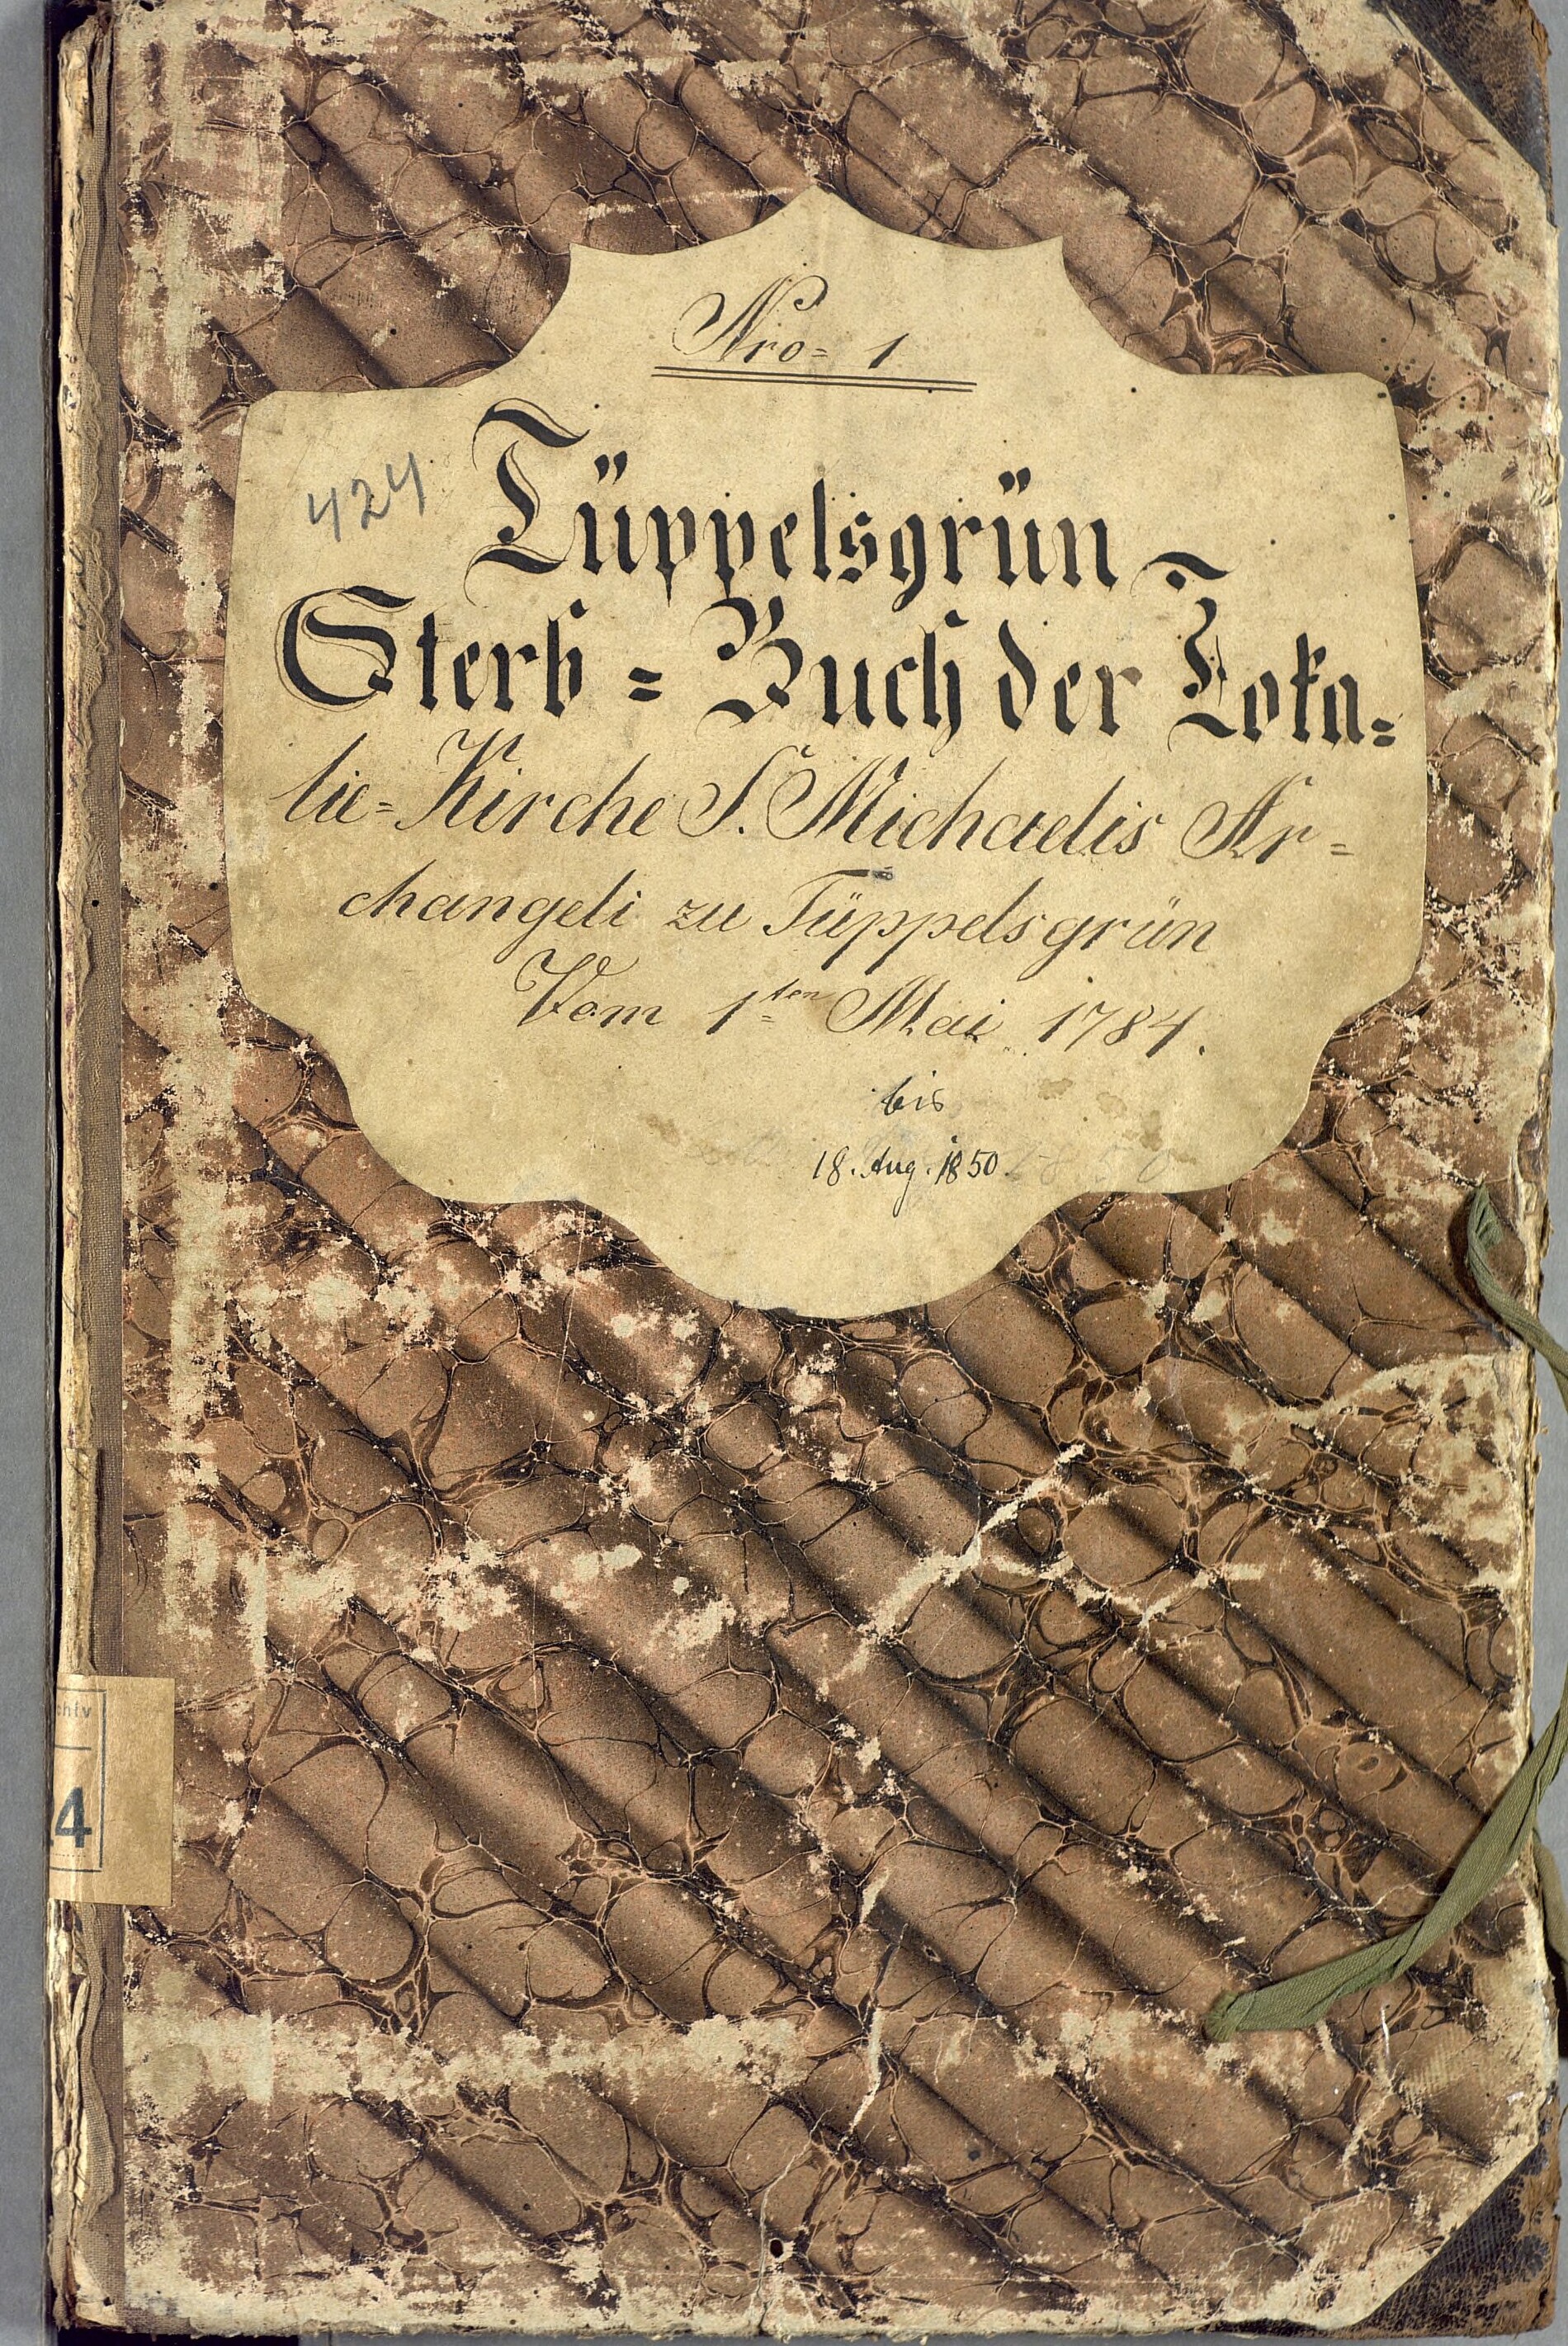 Nro= 1
424
Tüppelsgrün
Sterb = Buch der Loka=
lie=Kirche S. Michaelis Ar=
changeli zu Tüppelsgrün
Vom 1ten Mai 1784.
bis
18. Aug. 1850.
chiv
4